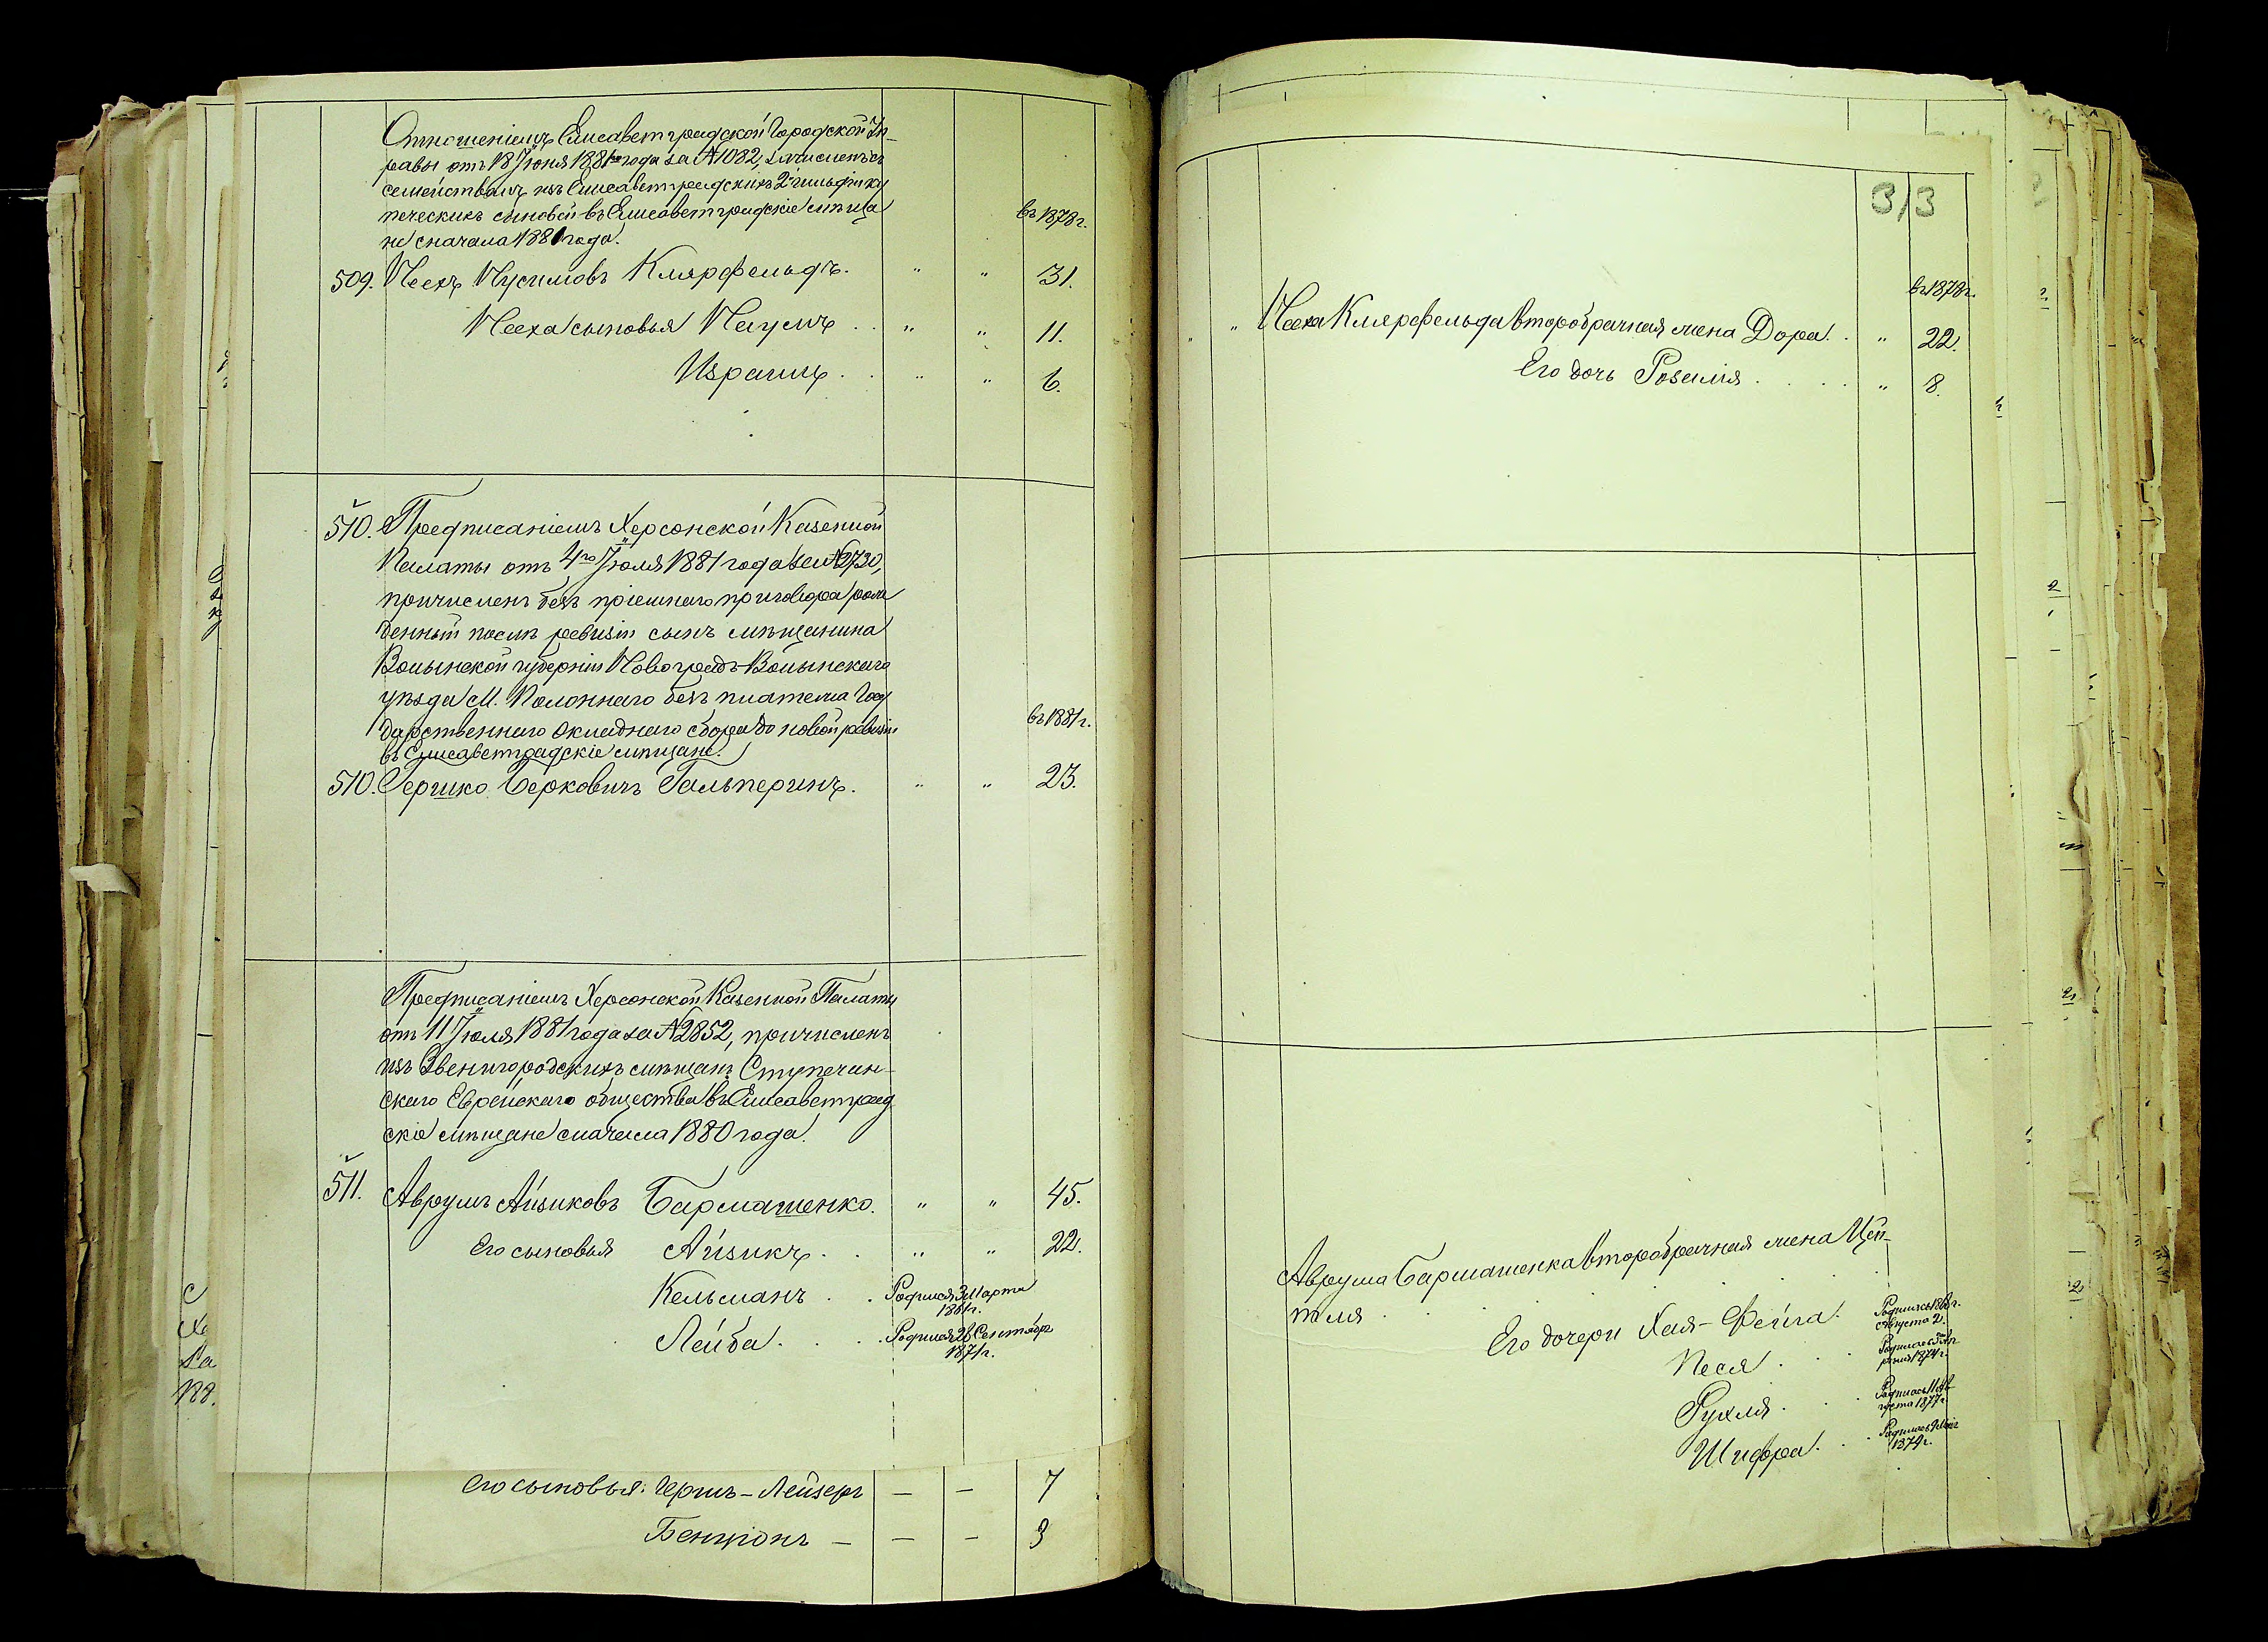 Отношеніемъ Елисаветградской Городской Уп-
равы отъ 18 Іюня 1881 года за № 1082, зачисленъ съ
семействомъ изъ Елисаветградскихъ 2 гильдіи ку
печескихъ сыновей въ Елисаветградскіе мѣща
не сначала 1881 года.
въ 1878 г.
509. Песхъ Нусимовъ Клярфельдъ. " " 31.
Песха сыновья Наумъ . . " " 11.
Израиль . . " " 6.
510. Предписаніемъ Херсонской Казенной
Палаты отъ 4го Іюля 1881 года за № 2730,
причисленъ безъ пріемнаго приговора рож
денный послѣ ревизіи сынъ мѣщанина
Волынской губерніи Новоградъ-Волынскаго
уѣзда М. Полоннаго безъ платежа Госу
дарственнаго окладнаго сбора до новой ревизіи
въ Елисаветградскіе мѣщане.
въ 1881 г.
510. Гершко Берковичъ Гальперинъ. " " 23.
Предписаніемъ Херсонской Казенной Палаты
отъ 11 Іюля 1881 года за № 2852, причисленъ
изъ Звенигородскихъ мѣщанъ Ступечин-
скаго Еврейскаго общества въ Елисаветград
скіе мѣщане сначала 1880 года.
511. Аврумъ Айзиковъ Бармашенко. " " 45.
Его сыновья Айзикъ . . " " 22.
Кельманъ . . Родился 3 Марта
1861 г.
Лейба . . . Родился 26 Сентября
1871 г.
Его сыновья: Гершъ-Лейзеръ — — 7
Бенціонъ — — — 3
313
въ 1878 г.
" Песха Клярфельда второбрачная жена Дора . . " 22.
Его дочь Розалія . . . . " 8.
Аврума Бармашенка второбрачная жена Цей-
тля . . . . .
Его дочери Хая-Фейга. Родилась 1868 г.
Августа 2.
Песя . . . Родилась 5 Ап
рѣля 1874 г.
Рухля . . . Родилась 11 Ав
густа 1877 г.
Шифра . . . Родилась
1879 г.